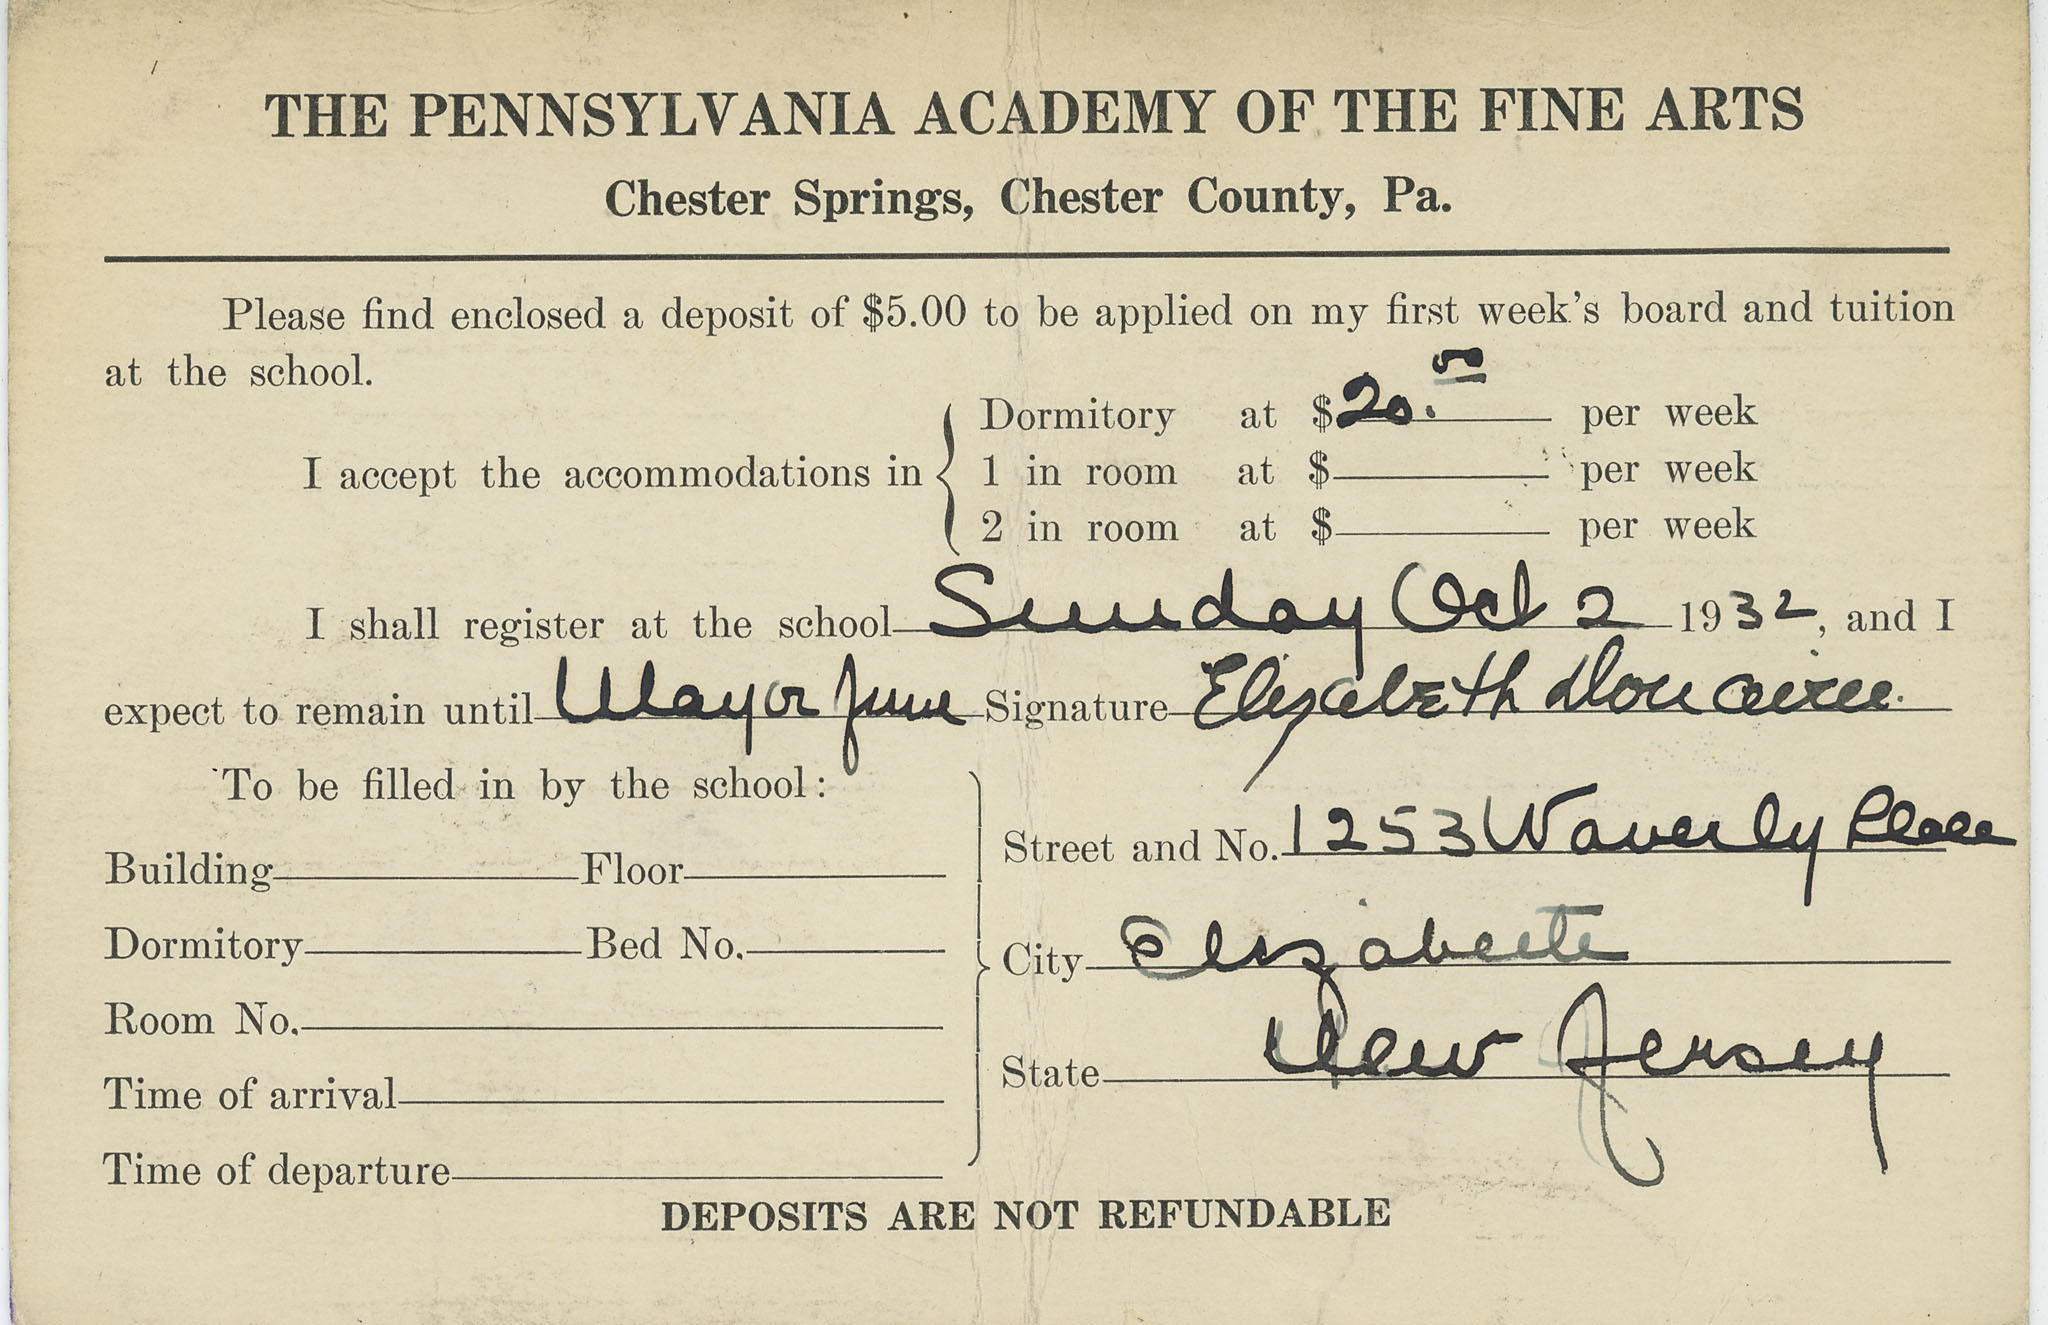 THE PENNSYLVANIA ACADEMY OF THE FINE ARTS
Chester Springs, Chester County, Pa.
Please find enclosed a deposit of $5.00 to be applied on my first week's board and tuition
at the school.
Dormitory at $20.00 per week
I accept the accommodations in 1 in room at $ per week
2 in room at $ per week
I shall register at the school Sunday Oct 2 1932, and I
expect to remain until May or June Signature Elizabeth
To be filled in by the school:
Street and No. 1253 Waverly Place
Building Floor
Dormitory Bed No.
City Elizabeth
Room No.
State New Jersey
Time of arrival
Time of departure
DEPOSITS ARE NOT REFUNDABLE